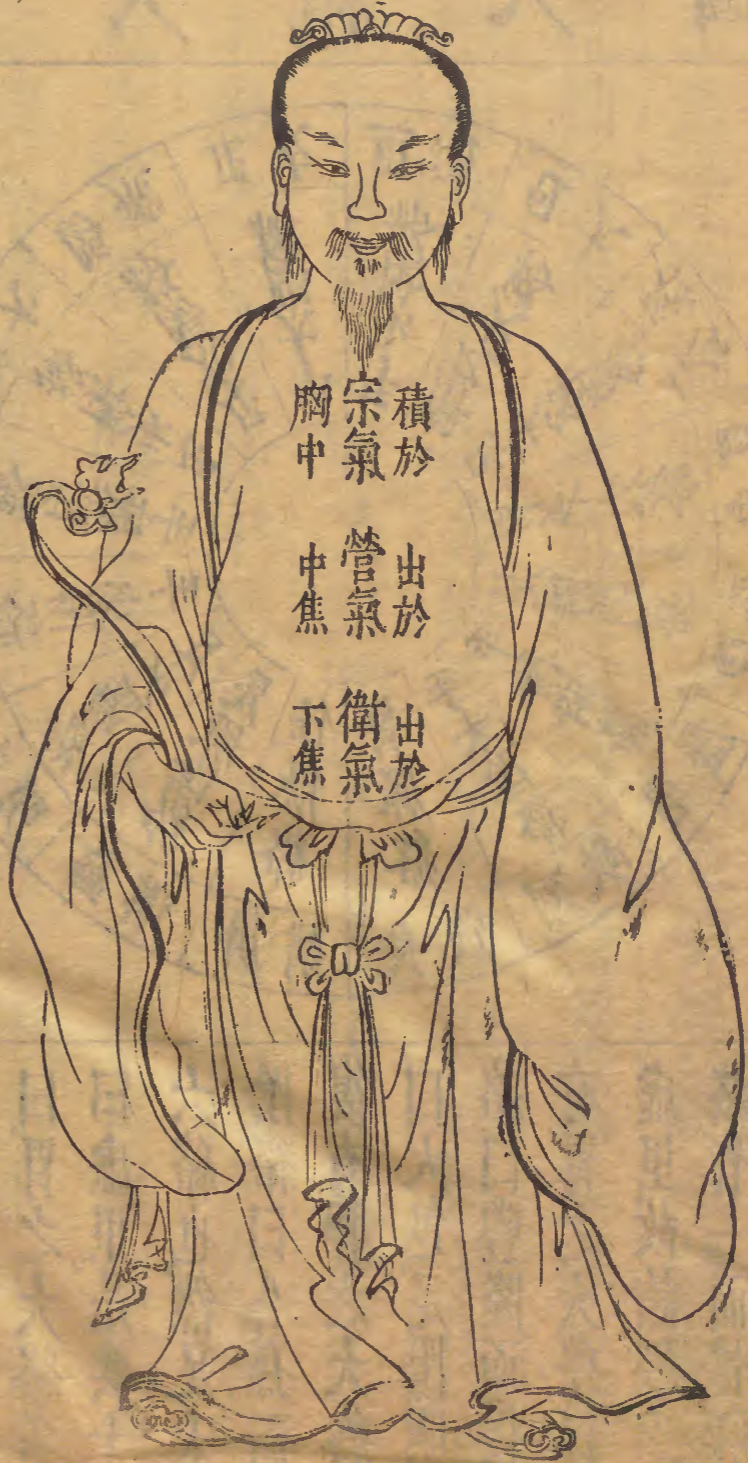 宗氣
積於
胸中
營氣
出於
中焦
衛氣
出於
下焦